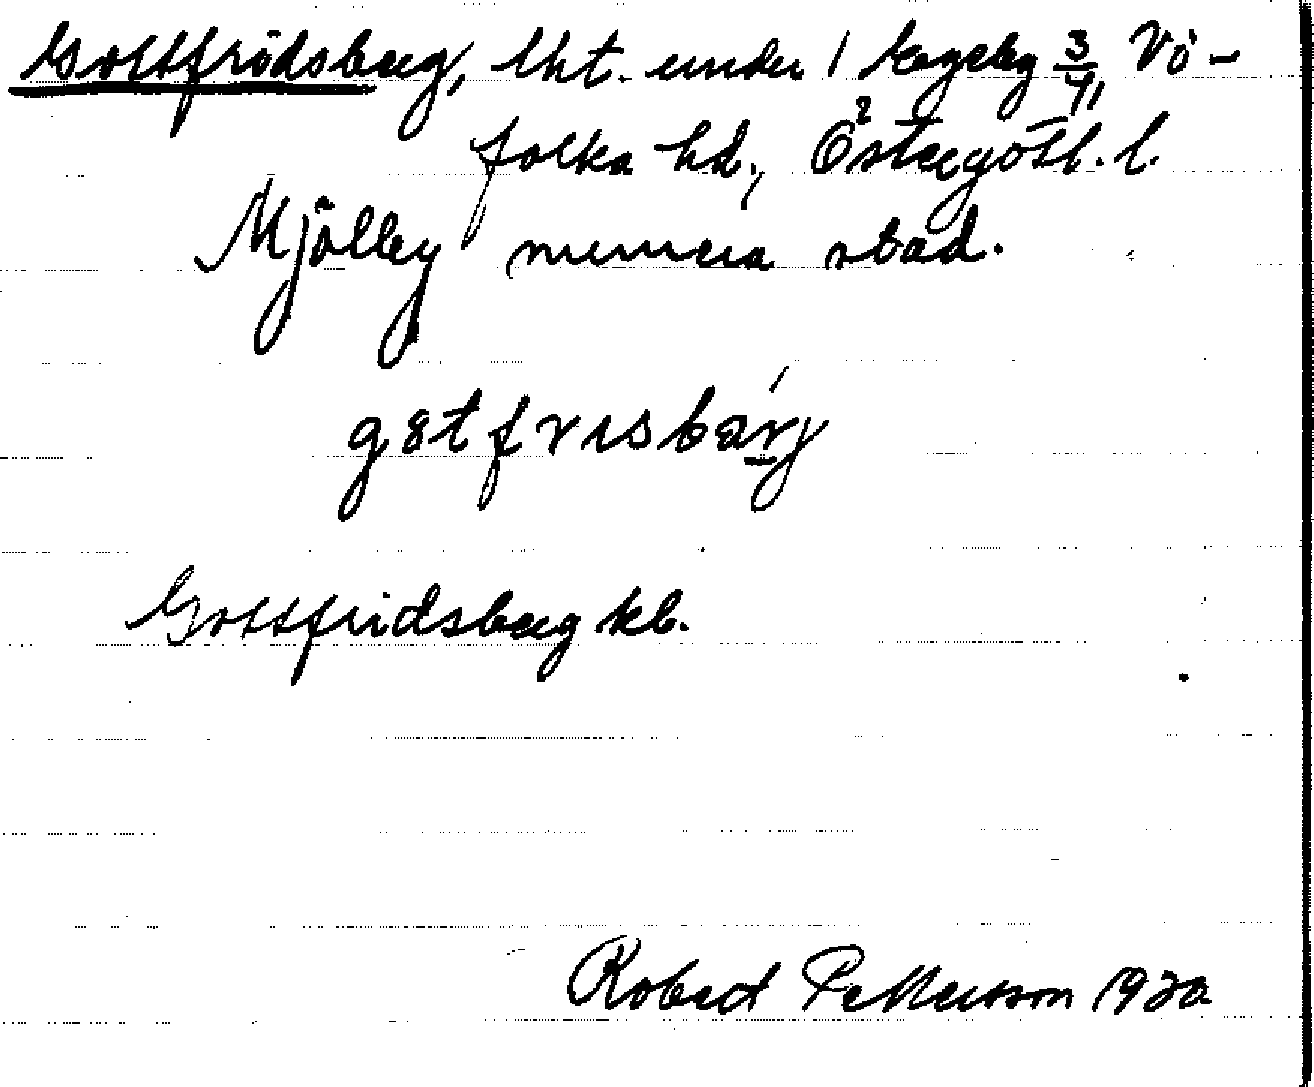 Gottfridsberg, lht. under 1 Egeby 3/4, Vi-
folka hd, Östergötl. l.
Mjölby numera stad.
gɵtfrɪsbärj
Gottfridsberg kb.
Robert Pettersson 1930